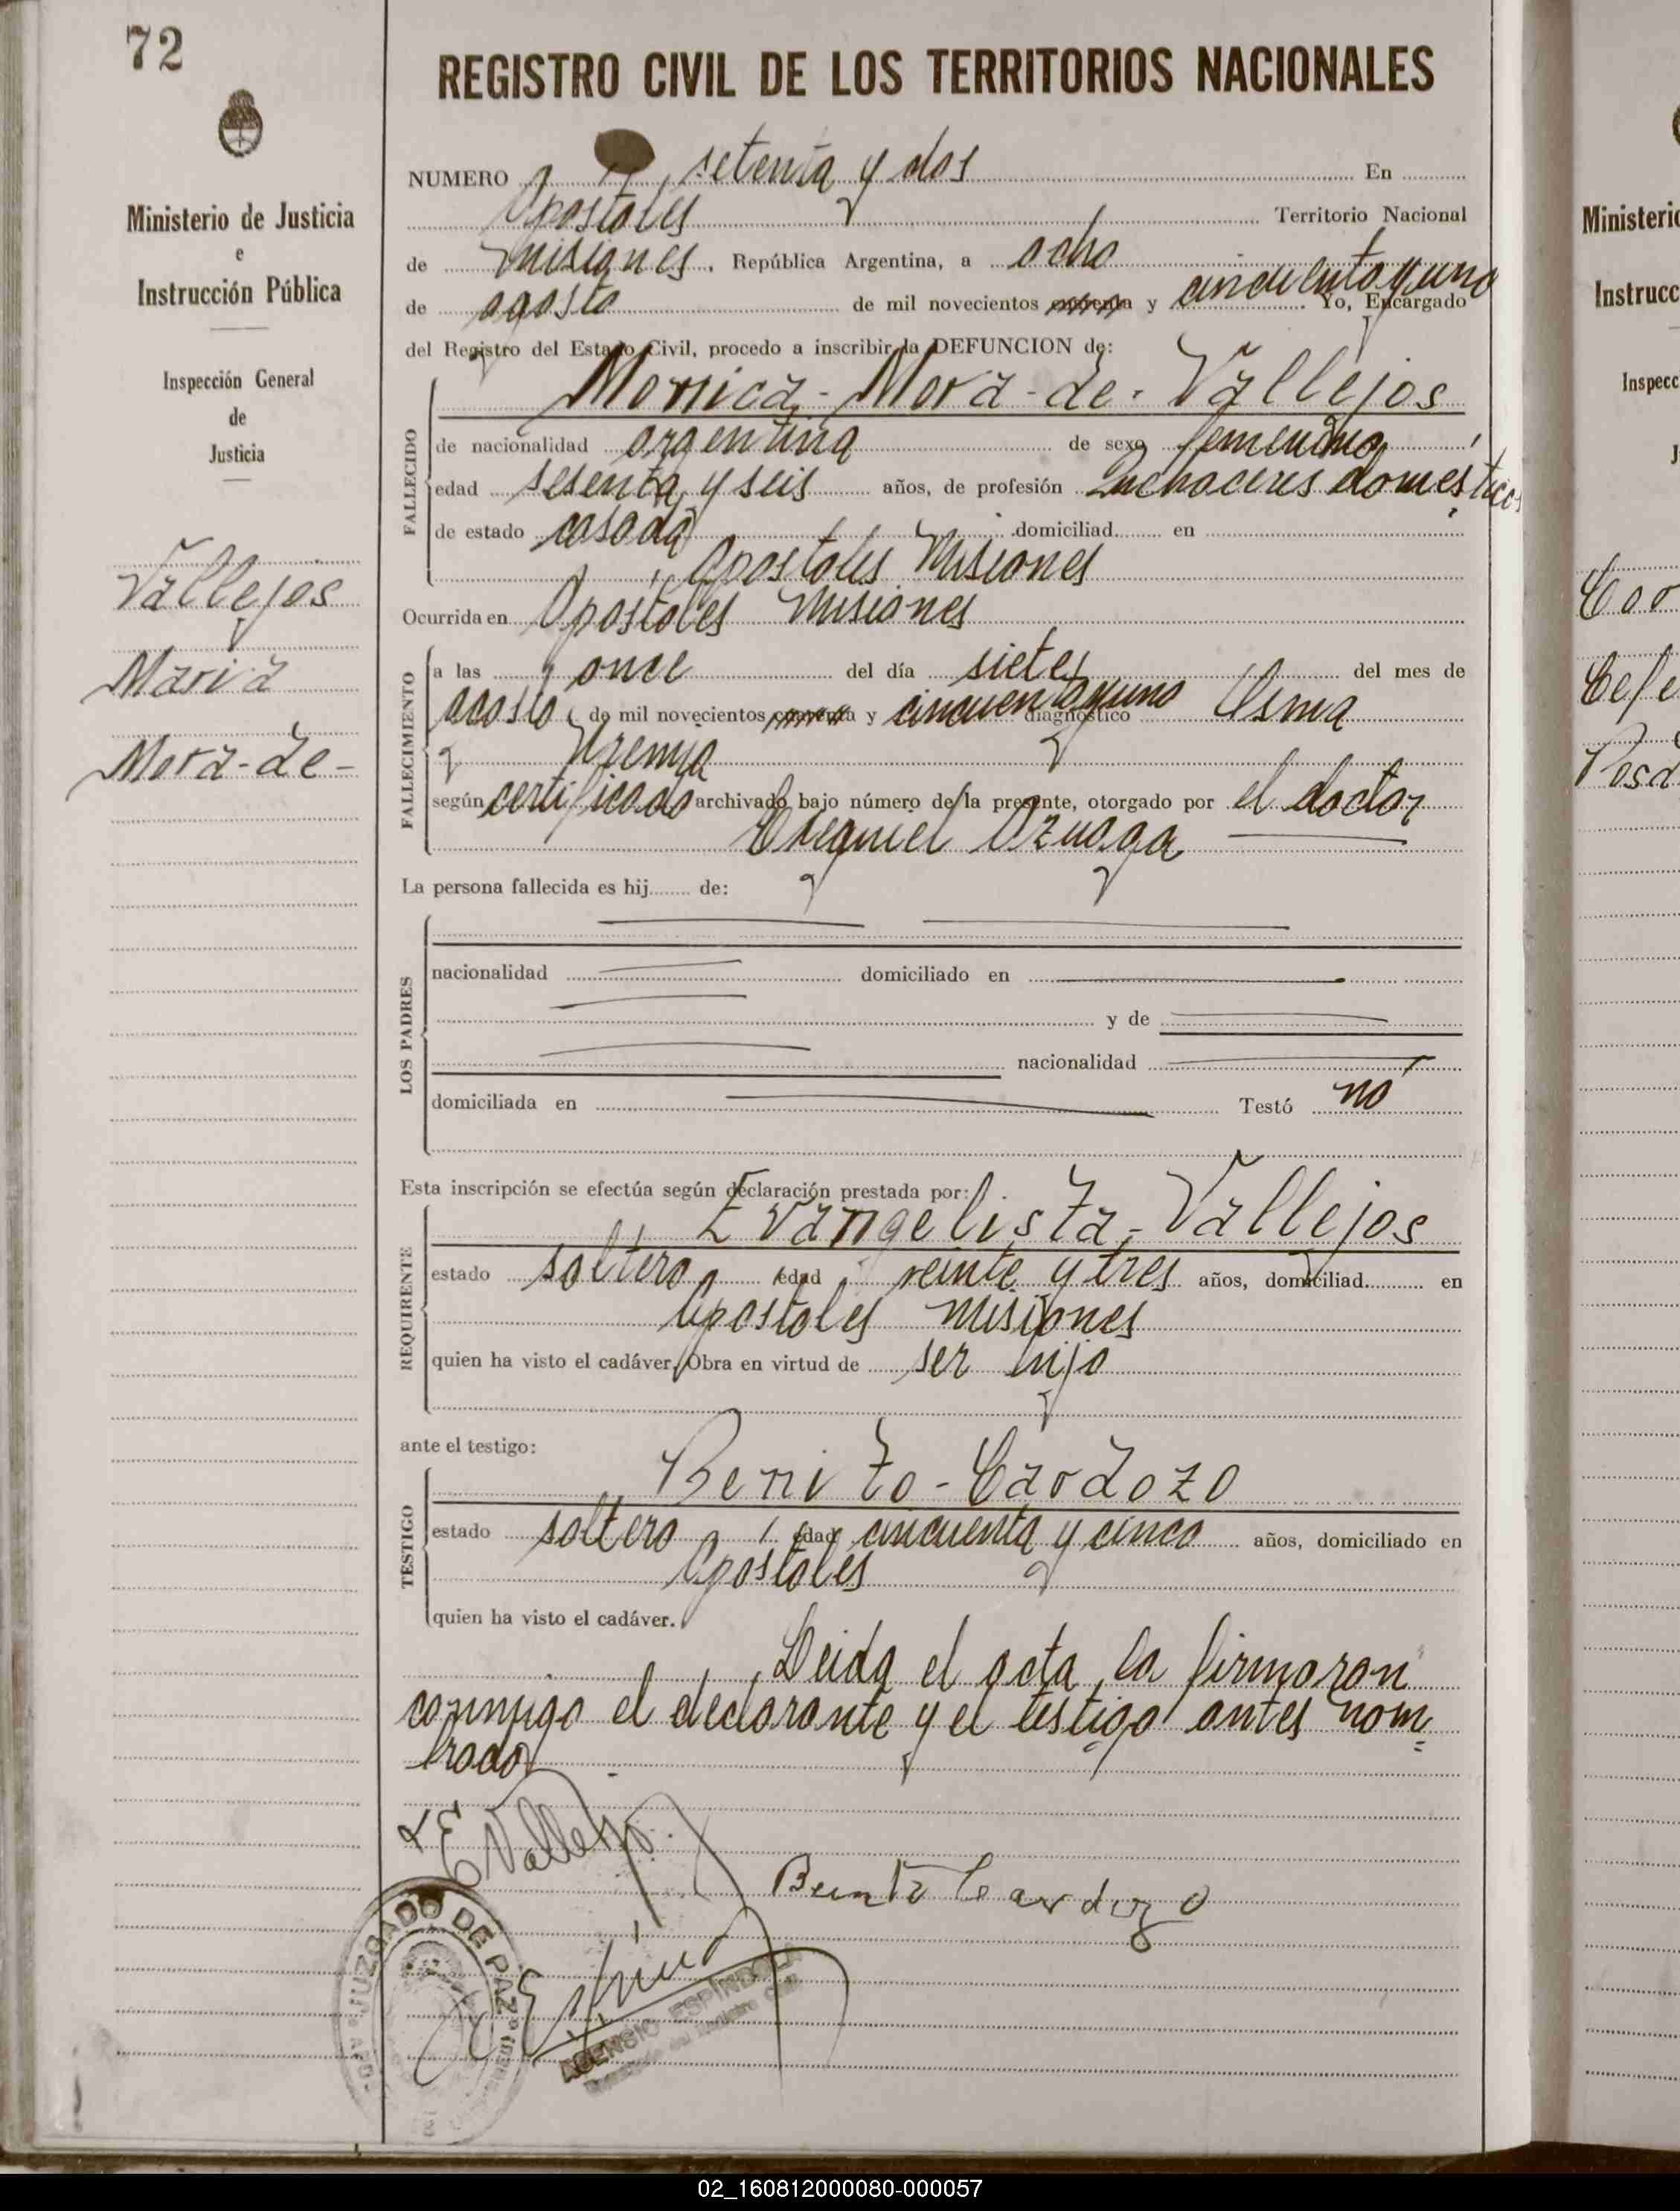 72
REGISTRO CIVIL DE LOS TERRITORIOS NACIONALES
Ministerio de Justicia
e
Instrucción Pública
Inspección General
de
Justicia
Vallejos
Maria
Mora-de-
NUMERO setenta y dos En
Apostoles Territorio Nacional
de Misiones, República Argentina, a ocho
de agosto de mil novecientos y cincuenta y uno Yo, Encargado
del Registro del Estado Civil, procedo a inscribir la DEFUNCION de:
Monica-Mora-de-Vallejos
FALLECIDO
de nacionalidad argentina de sexo femenino
edad sesenta y seis años, de profesión Quehaceres domesticos
de estado casada domiciliad en
Apostoles Misiones
Ocurrida en Apostoles Misiones
FALLECIMIENTO
a las once del día siete del mes de
agosto de mil novecientos y cincuenta y uno diagnóstico Asma
Uremia
según certificado archivado bajo número de la presente, otorgado por el doctor
Exequiel Azuaga
La persona fallecida es hij de:
LOS PADRES
nacionalidad domiciliado en
y de
nacionalidad
domiciliada en Testó no
Esta inscripción se efectúa según declaración prestada por:
Evangelista-Vallejos
REQUIRENTE
estado soltero edad veinte y tres años, domiciliad en
Apostoles Misiones
quien ha visto el cadáver. Obra en virtud de ser hijo
ante el testigo:
Benito-Cardozo
TESTIGO
estado soltero edad cincuenta y cinco años, domiciliado en
Apostoles
quien ha visto el cadáver.
Leida el acta, la firmaron
conmigo el declarante y el testigo antes nom=
brado
E Vallejo
Benito Cardozo
JUZGADO DE PAZ
ASENCIO ESPINDOLA
Ministerio
Instrucc
Inspecc
J
02_160812000080-000057